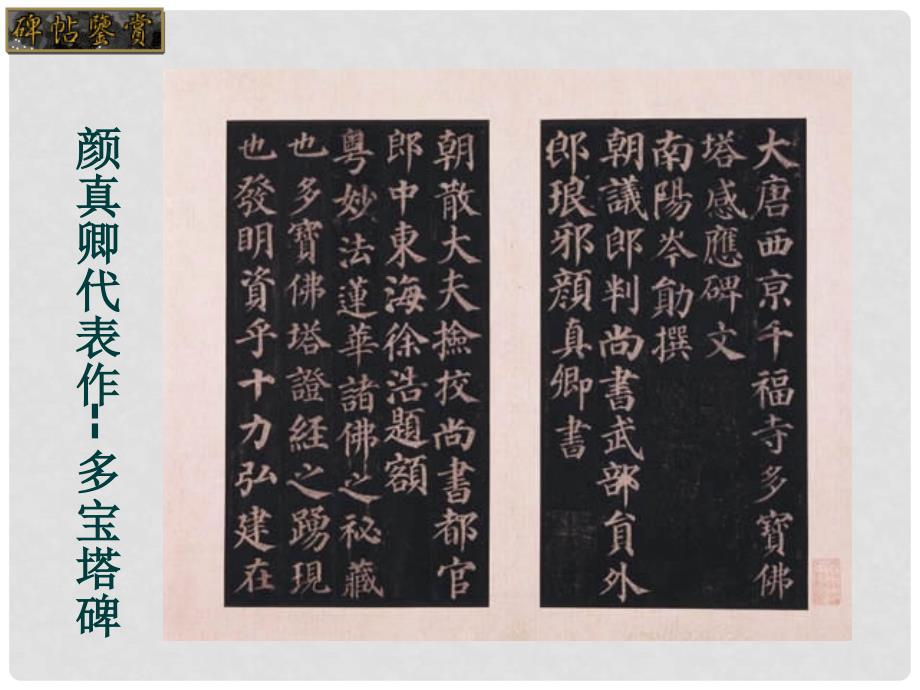 碑帖鑒赏
颜真卿代表作--多宝塔碑
大唐西京千福寺多寶佛
塔感應碑文
南陽岑勛撰
朝議郎判尚書武部員外
郎琅邪顔真卿書
朝散大夫撿挍尚書都官
郎中東海徐浩題額
粵妙法蓮華諸佛之祕藏
也多寶佛塔證經之踴現
也發明資乎十力弘建在